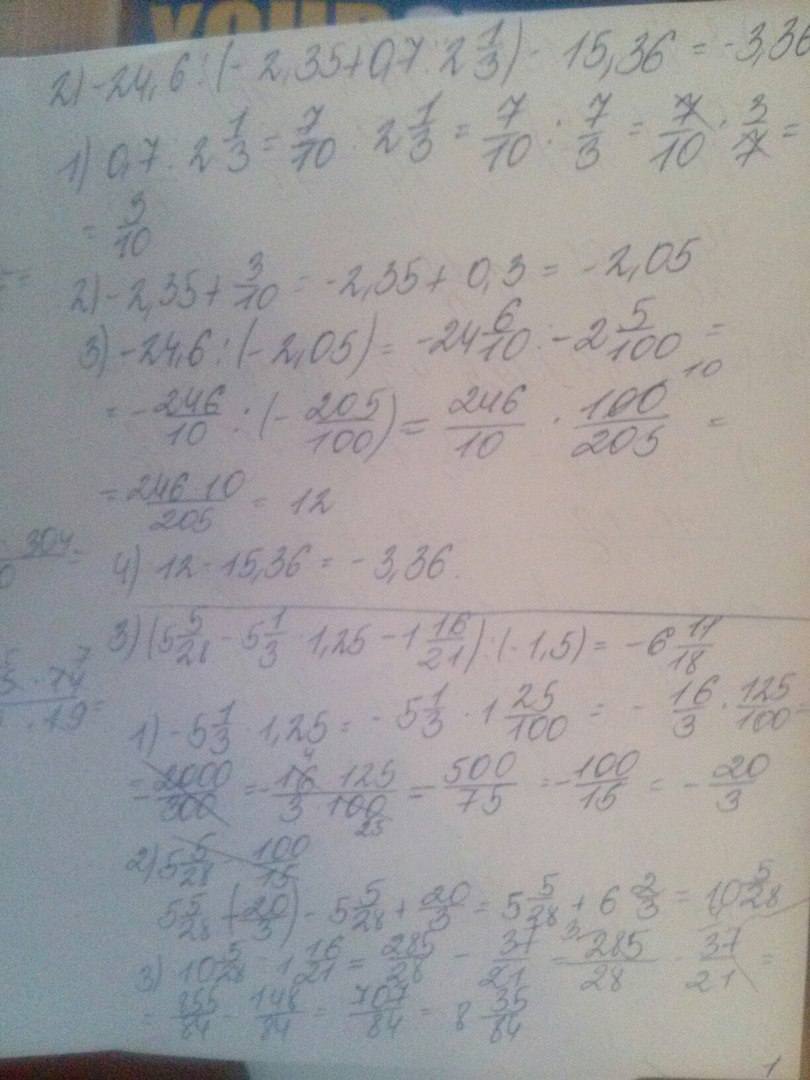 YOUR
2) -24,6 : (-2,35 + 0,7 : 2 1/3) - 15,36 = -3,36
1) 0,7 : 2 1/3 = 7/10 : 2 1/3 = 7/10 : 7/3 = 7/10 · 3/7 =
= 3/10
2) -2,35 + 3/10 = -2,35 + 0,3 = -2,05
3) -24,6 : (-2,05) = -24 6/10 : -2 5/100 =
= -246/10 : (-205/100) = 246/10 · 100/205 =
10
= 246 10/205 = 12
4) 12 - 15,36 = -3,36.
3) (5 5/28 - 5 1/3 · 1,25 - 1 16/21) : (-1,5) = -6 11/18
1) -5 1/3 · 1,25 = -5 1/3 · 1 25/100 = -16/3 · 125/100 =
= 2000/300 = -16 125/3 100 = -500/75 = -100/15 = -20/3
4
25
2) 5 5/28 100/15
5 5/28 - (-20/3) = 5 5/28 + 20/3 = 5 5/28 + 6 2/3 = 10 5/28
3) 10 5/28 - 1 16/21 = 285/28 - 37/21 = 285/28 - 37/21 =
3
= 855/84 - 148/84 = 707/84 = 8 35/84
304
1